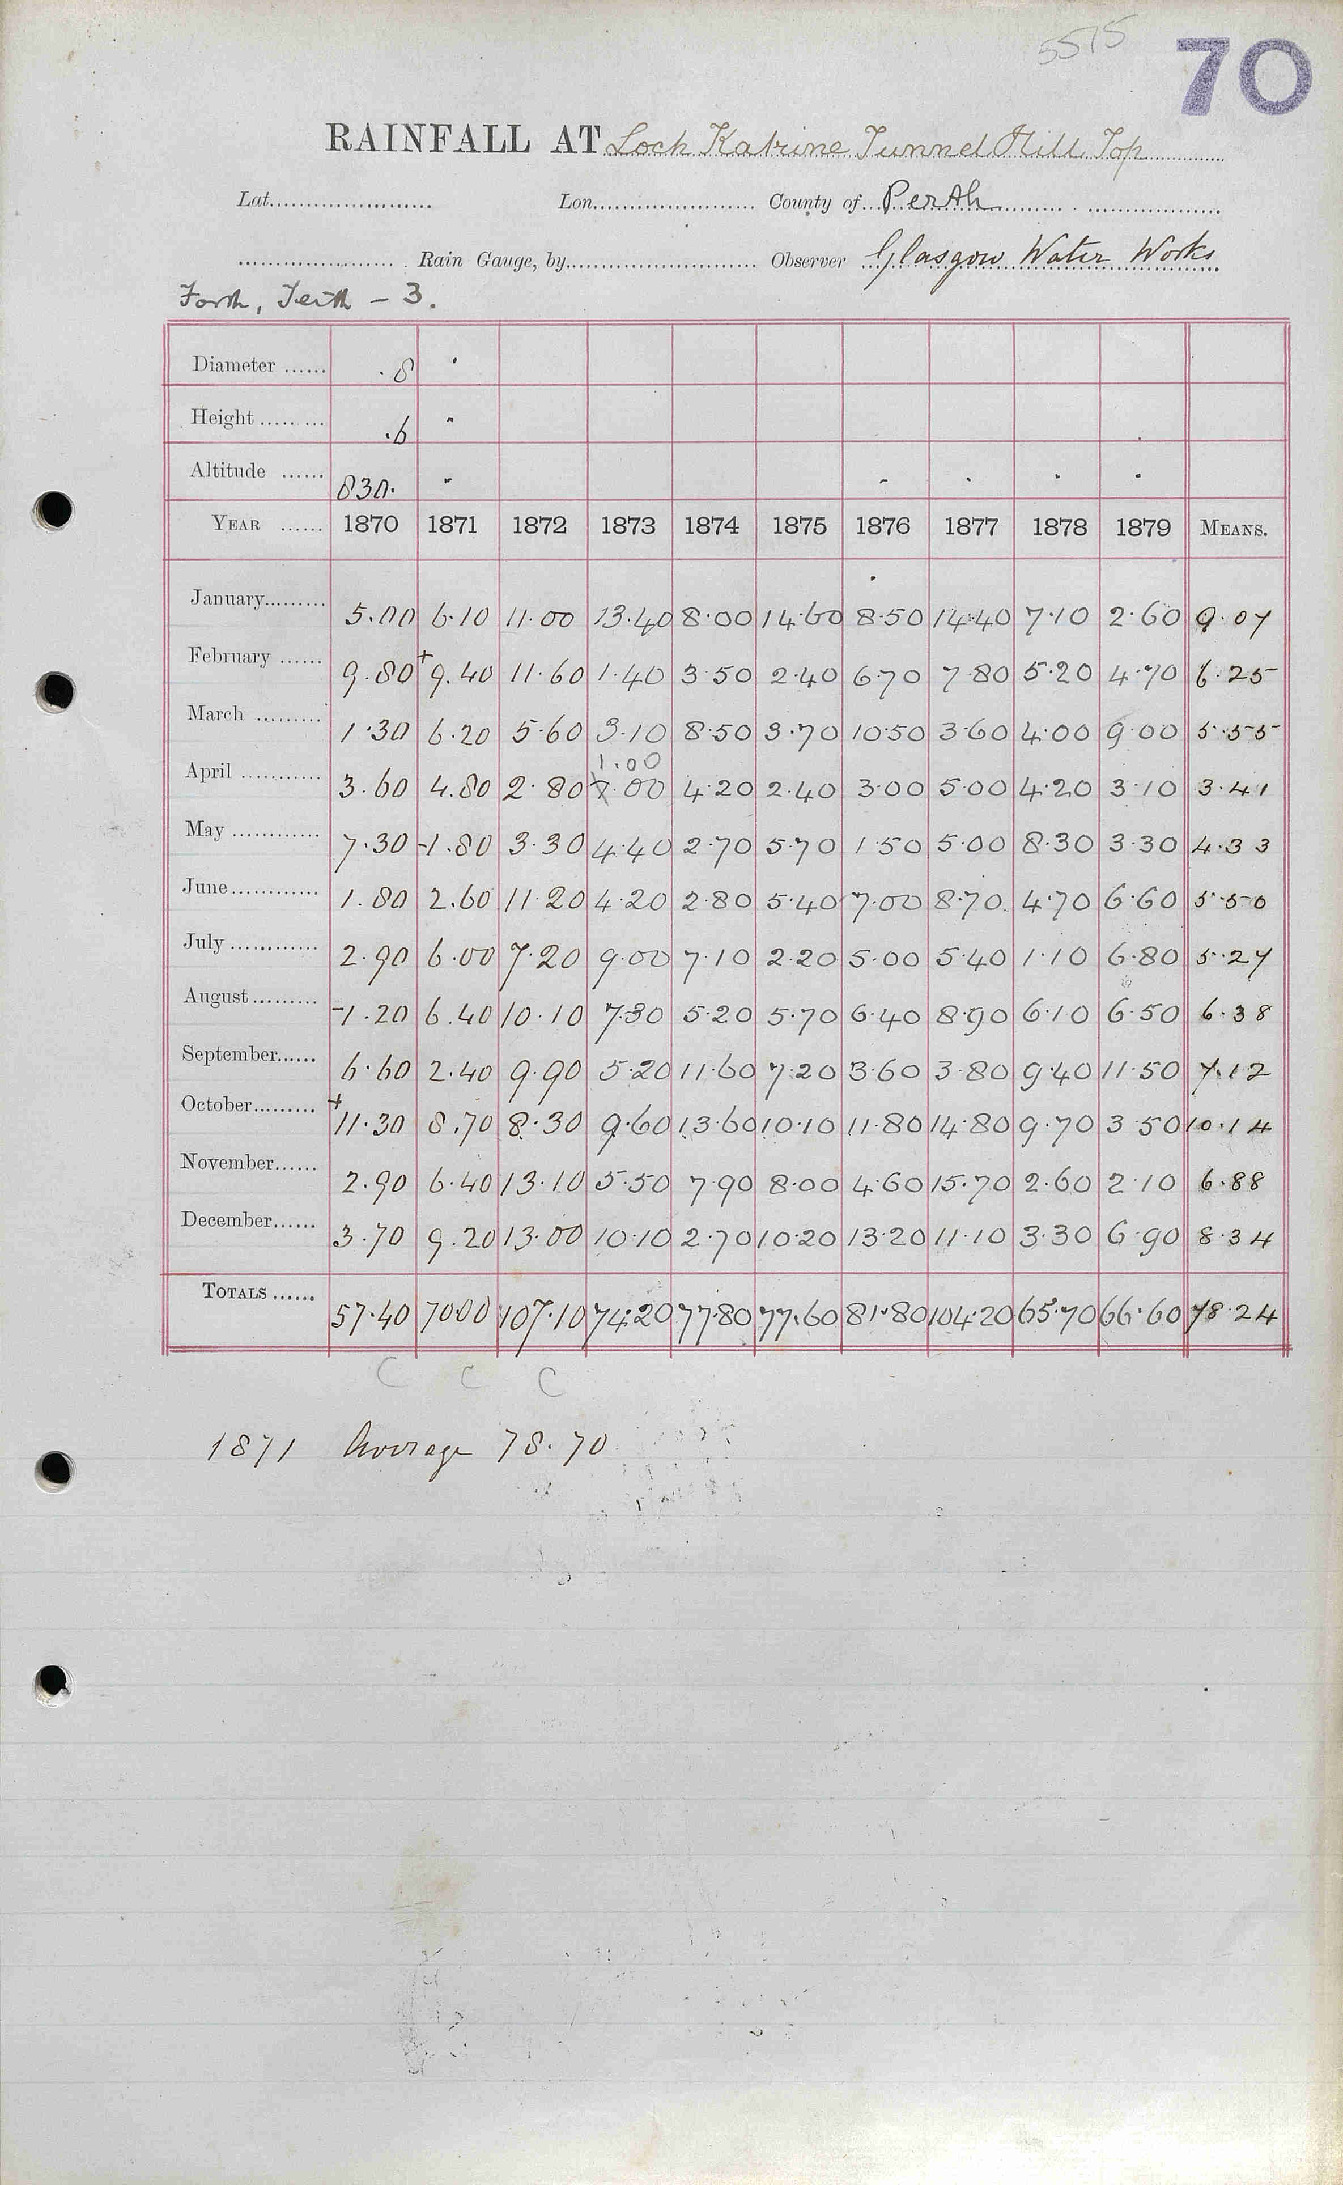 5515
70
RAINFALL AT Loch Katrine Tunnel Hill Top
Lat. Lon. County of Perth
Rain Gauge, by Observer Glasgow Water Works
Forth, Teith - 3.
Diameter ...... .8 "
Height ......... .6 "
Altitude ...... 830. "
YEAR ...... 1870 1871 1872 1873 1874 1875 1876 1877 1878 1879 MEANS.
January......... 5.00 6.10 11.00 13.40 8.00 14.60 8.50 14.40 7.10 2.60 9.07
February ...... 9.80 + 9.40 11.60 1.40 3.50 2.40 6.70 7.80 5.20 4.70 6.25
March ......... 1.30 6.20 5.60 3.10 8.50 3.70 10.50 3.60 4.00 9.00 5.55
1.00
April ........... 3.60 4.80 2.80 7.00 4.20 2.40 3.00 5.00 4.20 3.10 3.41
May ............ 7.30 -1.80 3.30 4.40 2.70 5.70 1.50 5.00 8.30 3.30 4.33
June............ 1.80 2.60 11.20 4.20 2.80 5.40 7.00 8.70 4.70 6.60 5.50
July ............ 2.90 6.00 7.20 9.00 7.10 2.20 5.00 5.40 1.10 6.80 5.27
August......... -1.20 6.40 10.10 7.30 5.20 5.70 6.40 8.90 6.10 6.50 6.38
September...... 6.60 2.40 9.90 5.20 11.60 7.20 3.60 3.80 9.40 11.50 7.12
October......... + 11.30 8.70 8.30 9.60 13.60 10.10 11.80 14.80 9.70 3.50 10.14
November...... 2.90 6.40 13.10 5.50 7.90 8.00 4.60 15.70 2.60 2.10 6.88
December...... 3.70 9.20 13.00 10.10 2.70 10.20 13.20 11.10 3.30 6.90 8.34
TOTALS ...... 57.40 70.00 107.10 74.20 77.80 77.60 81.80 104.20 65.70 66.60 78.24
C C C
1871 Average 78.70